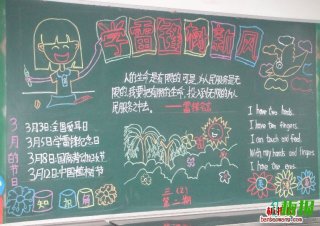 学雷锋树新风
人的生命是有限的,可是,为人民服务是无
限的,我要把有限的生命,投入到无限的为人
民服务之中去。
——雷锋
3月的节日
3月3日:全国爱耳日
3月5日:学雷锋纪念日
3月8日:国际劳动妇女节
3月12日:中国植树节
I have two hands.
I have ten fingers.
I can touch and feel.
With my hands and fingers
三(2)
第二期